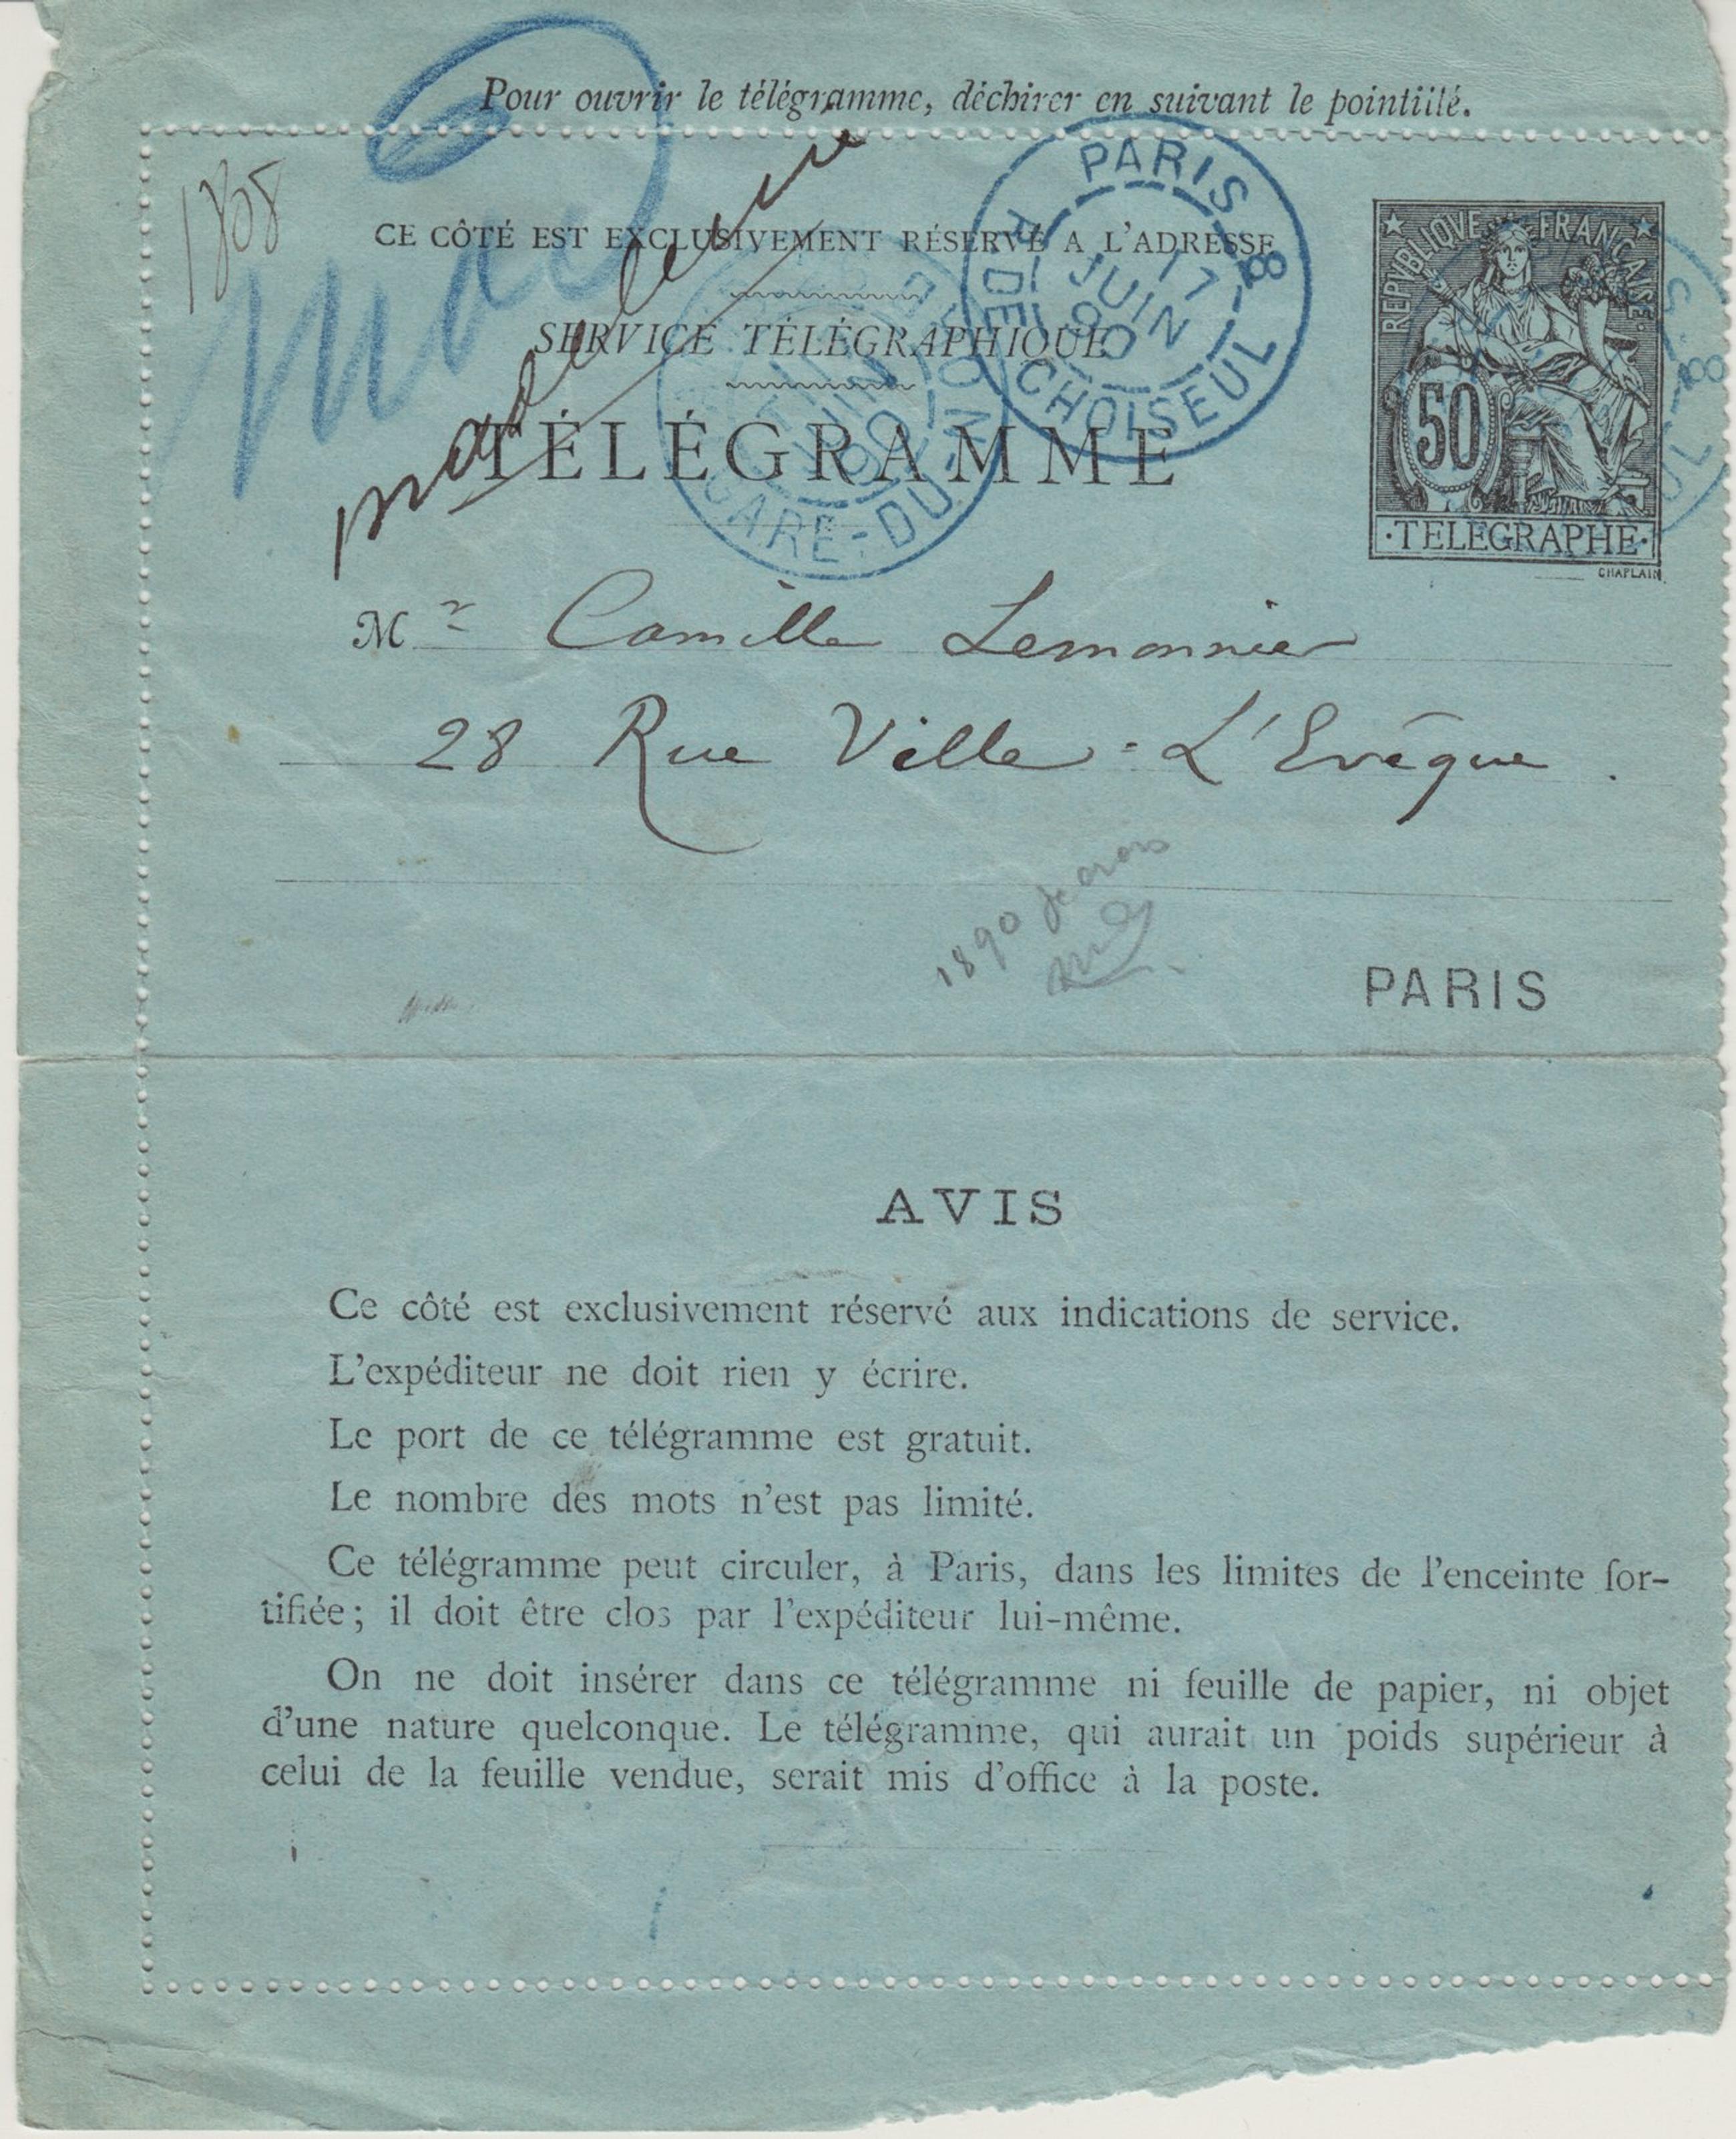 Pour ouvrir le télégramme, déchirer en suivant le pointillé.
1808
CE CÔTÉ EST EXCLUSIVEMENT RÉSERVÉ A L'ADRESSE
SERVICE TÉLÉGRAPHIQUE
TÉLÉGRAMME
madeleine
PARIS 8
R. DE CHOISEUL
17
JUIN
90
GARE-DU-N
JUIN
90
REPVBLIQVE FRANÇAISE
50
·TELEGRAPHE·
CHAPLAIN
Mr Camille Lemonnier
28 Rue Ville-L'Evêque.
1890
PARIS
AVIS
Ce côté est exclusivement réservé aux indications de service.
L'expéditeur ne doit rien y écrire.
Le port de ce télégramme est gratuit.
Le nombre des mots n'est pas limité.
Ce télégramme peut circuler, à Paris, dans les limites de l'enceinte for-
tifiée; il doit être clos par l'expéditeur lui-même.
On ne doit insérer dans ce télégramme ni feuille de papier, ni objet
d'une nature quelconque. Le télégramme, qui aurait un poids supérieur à
celui de la feuille vendue, serait mis d'office à la poste.